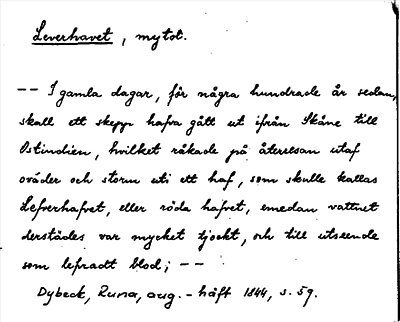 Leverhavet, mytol.
-- I gamla dagar, för några hundrade år sedan,
skall ett skepp hafva gått ut ifrån Skåne till
Ostindien, hvilket råkade på återresan utaf
oväder och storm uti ett haf, som skulle kallas
Lefverhafvet, eller röda hafvet, emedan vattnet
derstädes var mycket tjockt, och till utseende
som lefradt blod; --
Dybeck, Runa, aug.-häft 1844, s. 59.